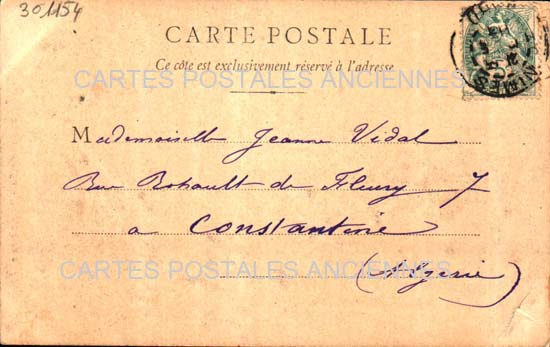 301154
CARTE POSTALE
Ce côté est exclusivement réservé à l'adresse
CARTES POSTALES ANCIENNES
Mademoiselle Jeanne Vidal
Rue Rohault de Fleury 7
a Constantine
CARTES POSTALES ANCIENNES
(Algérie)